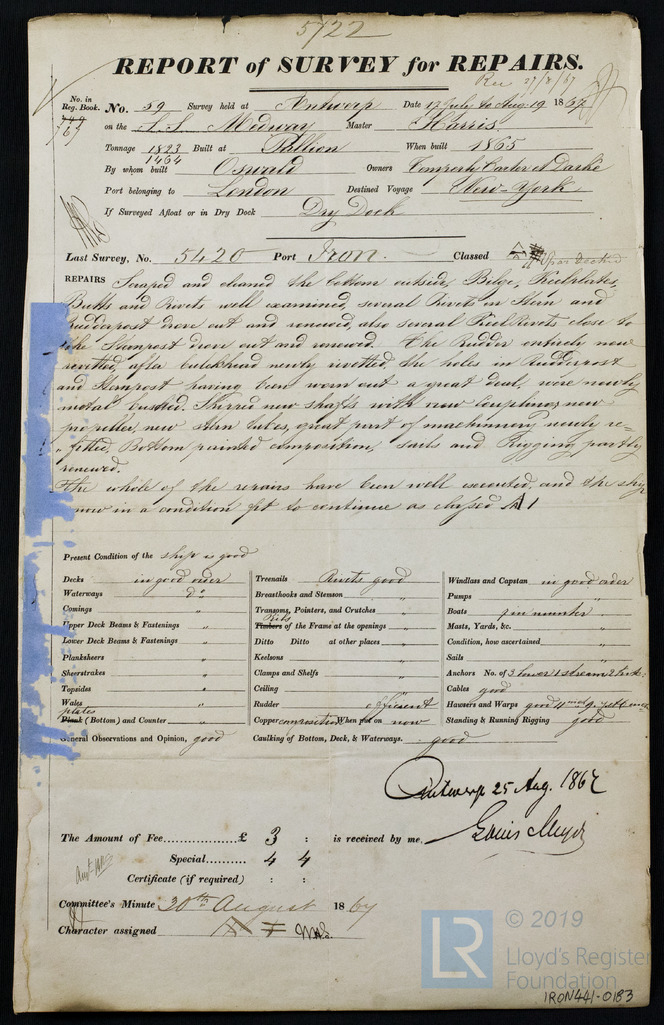 5722
REPORT of SURVEY for REPAIRS.
Rec 27/8/67
No. in Reg. Book. No. 59 Survey held at Antwerp Date 12 July to Aug. 19 1867
767
on the S.S. Medway Master Harris
Tonnage 1823 Built at Pallion When built 1865
1464
By whom built Oswald Owners Temperly Carter et Darke
Port belonging to London Destined Voyage New-York
If Surveyed Afloat or in Dry Dock Dry Dock
Last Survey, No. 5420 Port Iron. Classed A 1 Spar decked
REPAIRS Scraped and cleaned the bottom outside, Bilge, Keelplates,
Butts and Rivets well examined, several Rivets in Stern and
Rudderpost drove out and renewed, also several Keel Rivets close to
the Sternpost drove out and renewed. The Rudder entirely new
rivetted, after bulkhead newly rivetted, the holes in Rudderpost
and Sternpost having been worn out a great deal, were newly
metal bushed. Shipped new shafts with new couplings, new
propeller, new Stern tubes, great part of machinery newly re-
fitted, Bottom painted composition, Sails and Rigging partly
renewed.
The whole of the repairs have been well executed, and the ship
now in a condition fit to continue as classed A1
Present Condition of the ship is good
Decks in good order Treenails Rivets good Windlass and Capstan in good order
Waterways Do Breasthooks and Stemson " Pumps "
Comings " Transoms, Pointers, and Crutches " Boats
Upper Deck Beams & Fastenings " Ribs Timbers of the Frame at the openings " Masts, Yards, &c. "
Lower Deck Beams & Fastenings " Ditto Ditto at other places " Condition, how ascertained "
Planksheers " Keelsons " Sails "
Sheerstrakes " Clamps and Shelfs " Anchors No. of 3 bower 1 stream 2
Topsides " Ceiling " Cables good
Wales " Rudder efficient Hawsers and Warps good
plates Plank (Bottom) and Counter " Copper composition When put on now Standing & Running Rigging good
General Observations and Opinion, good Caulking of Bottom, Deck, & Waterways. good
Antwerp 25 Aug. 1867
The Amount of Fee £ 3 : is received by me, Louis Meyer
Special 4 4
Certificate (if required) : :
Committee's Minute 20th August 1867
Character assigned
LR © 2019
Lloyd's Register
Foundation
IRON441-0183